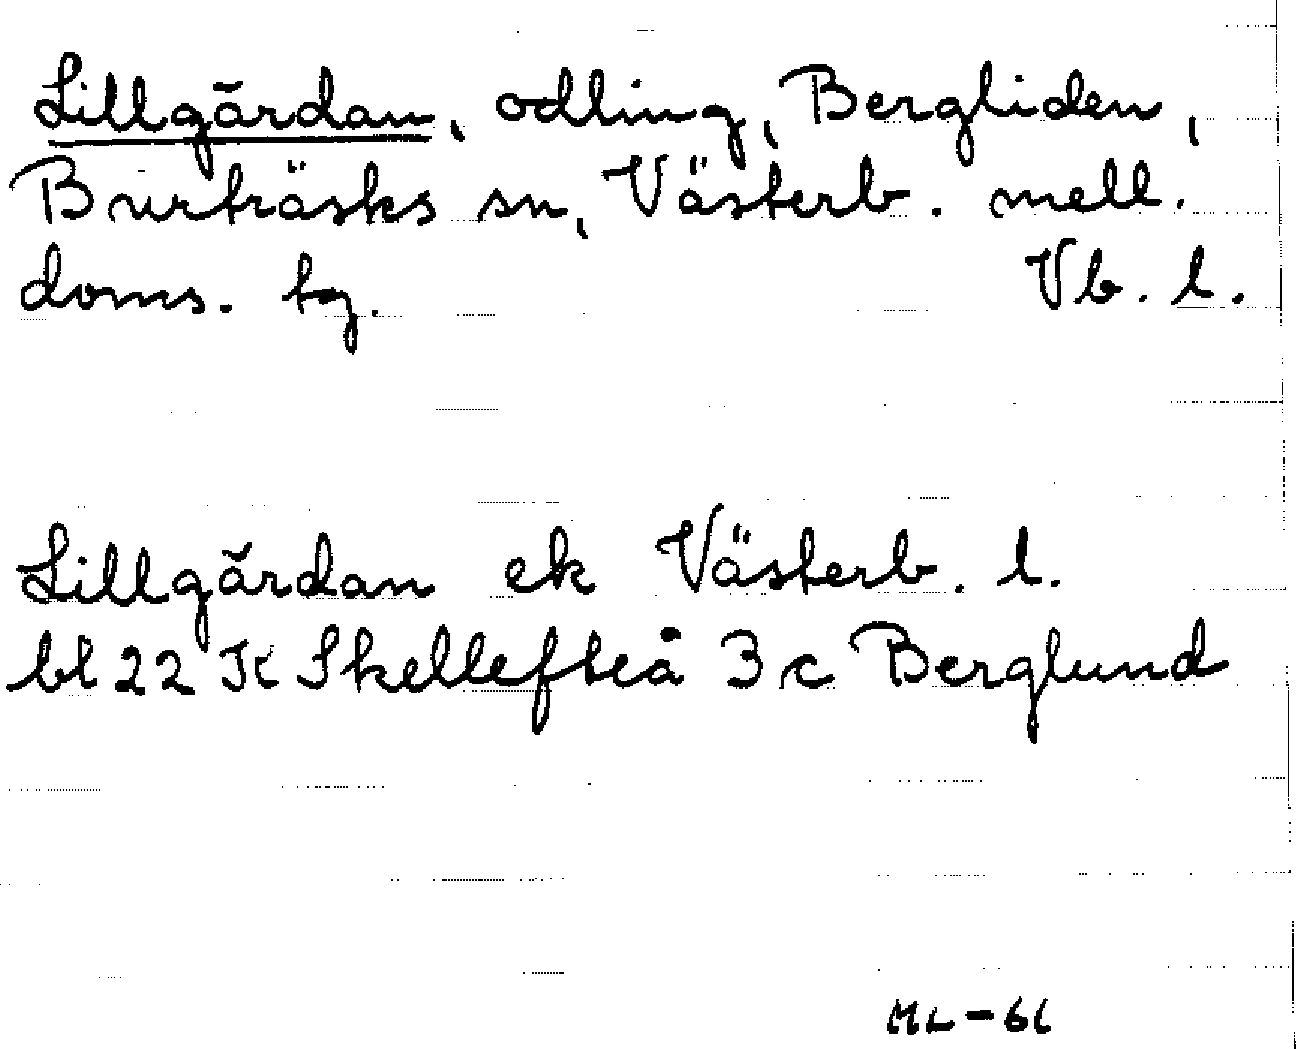 Lillgärdan, odling, Bergliden,
Burträsks sn, Västerb. mell.
doms. tg. Vb. l.
Lillgärdan ek Västerb. l.
bl 22 K Skellefteå 3c Berglund
ML-61